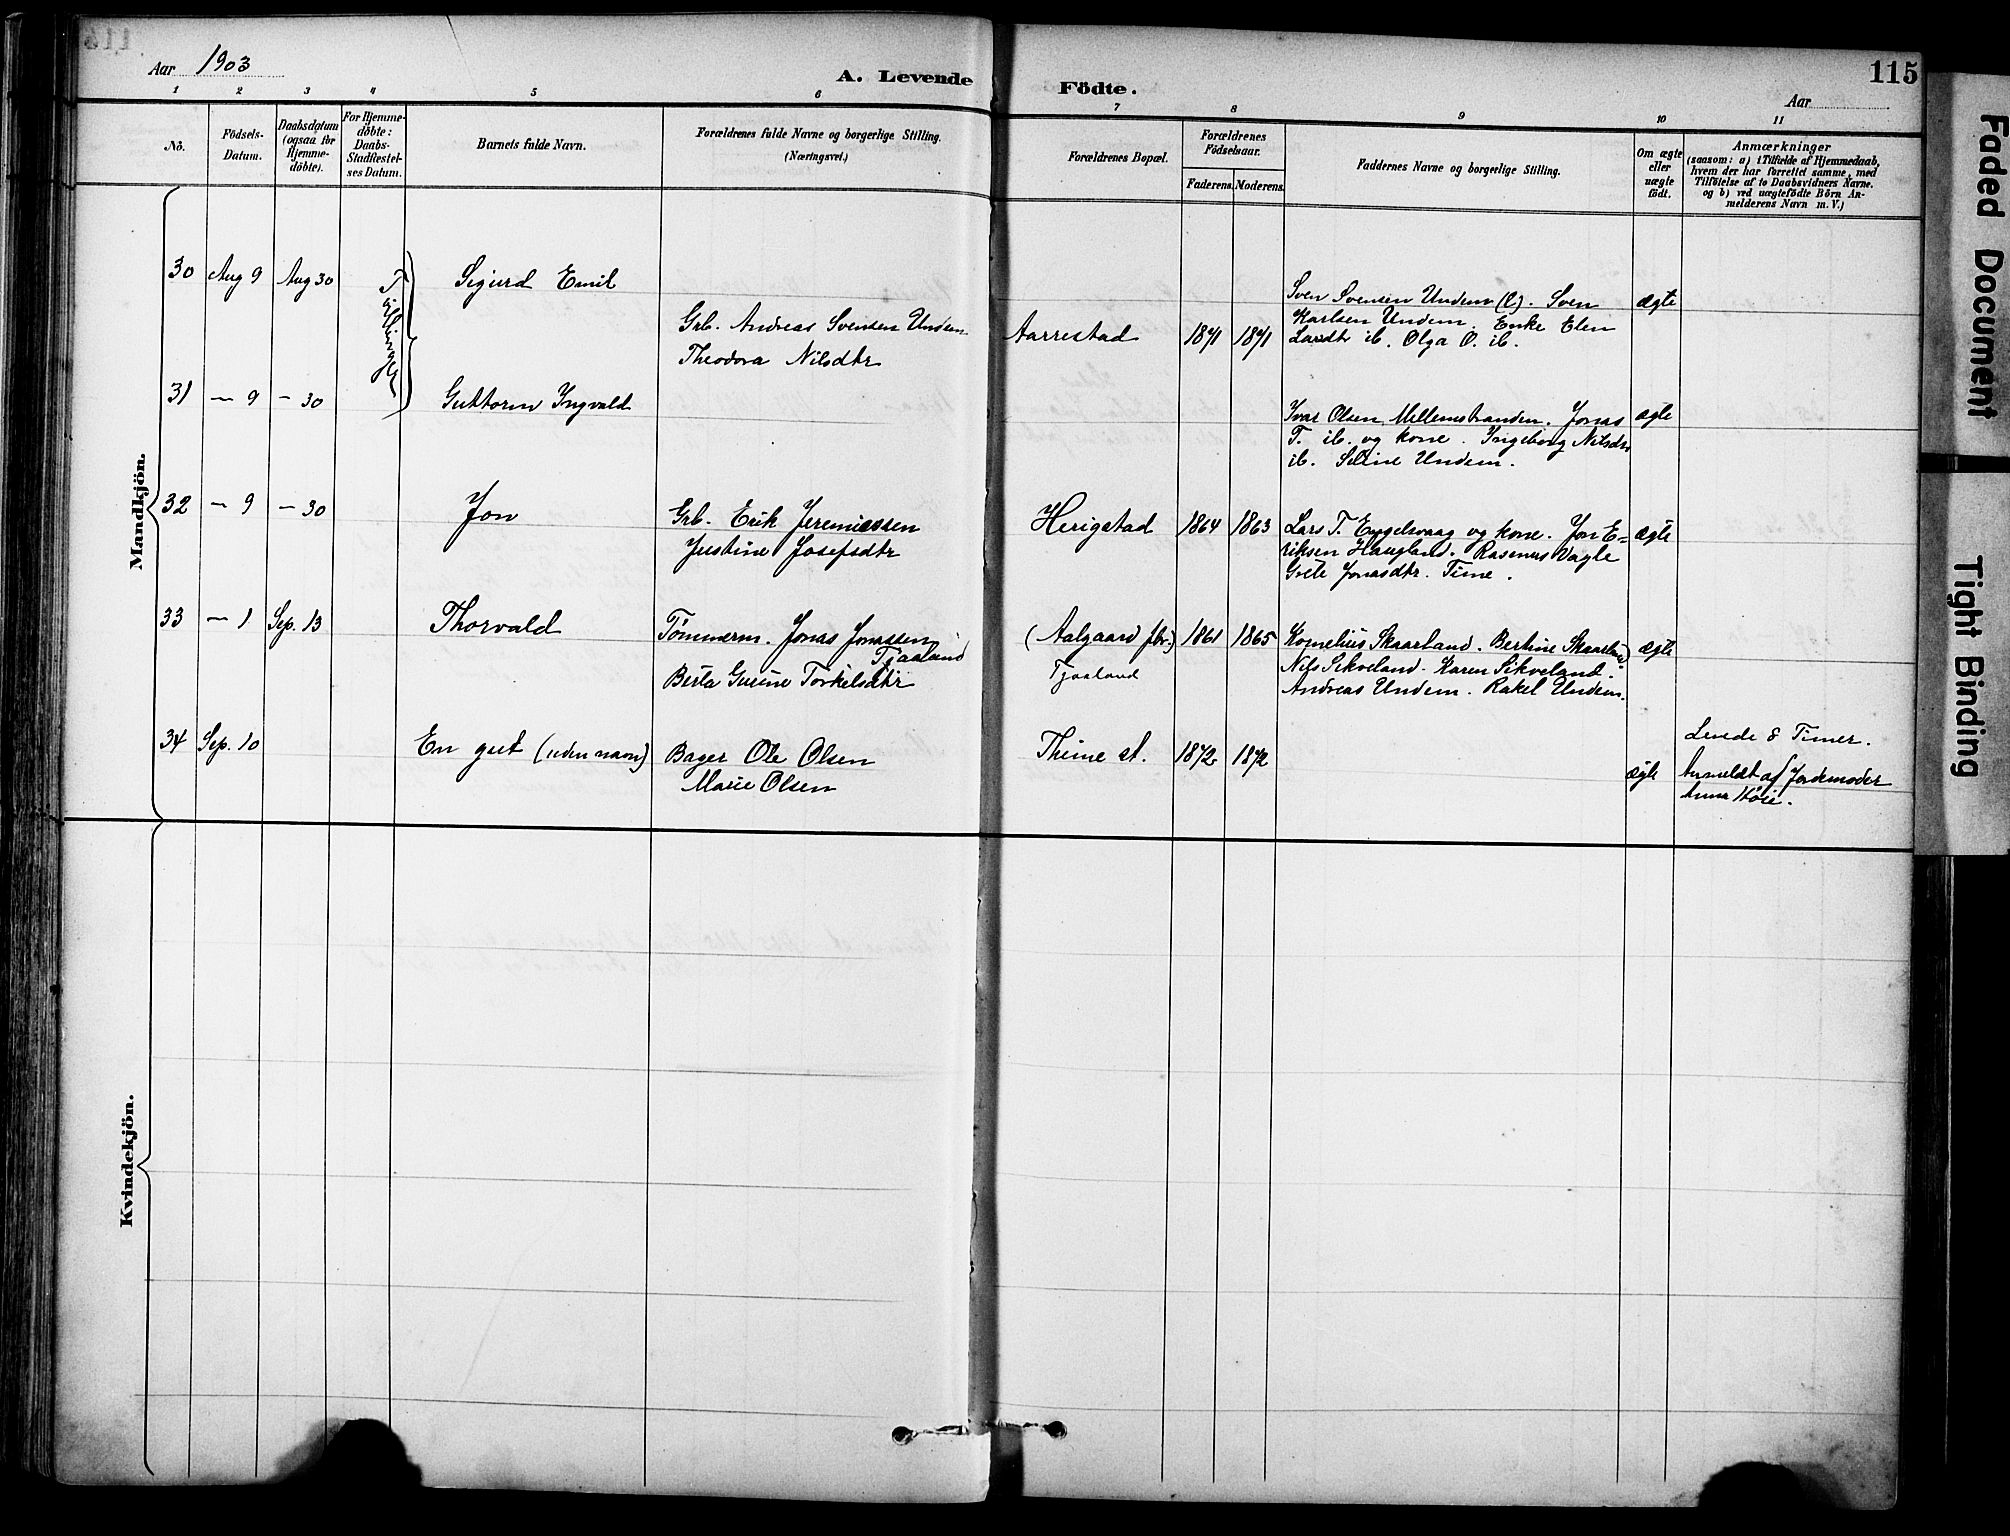 Aar 1903
A. Levende Födte.
115
Aar
1 2 3 4 5 6 7 8 9 10 11
Nô.
Födsels-
Datum.
Daabsdatum
(ogsaa for
Hjemme-
döbte).
For Hjemme-
döbte:
Daabs-
Stadfæstel-
ses Datum.
Barnets fulde Navn.
Forældrenes fulde Navne og borgerlige Stilling.
(Næringsvei.)
Forældrenes Bopæl.
Forældrenes
Födselsaar.
Faderens. Moderens.
Faddernes Navne og borgerlige Stilling.
Om ægte
eller
uægte
födt.
Anmærkninger
(saasom: a) i Tilfælde af Hjemmedaab,
hvem der har forrettet samme, med
Tilföielse af to Daabsvidners Navne.
og b) ved uægtefödte Börn An-
melderens Navn m.V.)
Mandkjön.
30 Aug 9 Aug 30 Sigurd Emil
Tvillinger
Grb. Andreas Svensen Undem
Theodora Nilsdtr
Aarrestad 1871 1871
Sven Svensen Undem. Sven
Karlsen Undem. Enke Elen
Larsdtr ib. Olga O. ib.
ægte
31 - 9 - 30 Guttorm Ingvald
Ivar Olsen Mellemstranden. Jonas
T. ib. og kone. Ingeborg Nilsdtr
ib. Seline Undem.
ægte
32 - 9 - 30 Jon
Grb. Erik Jeremiassen
Justine Josefsdtr
Herigstad 1864 1863
Lars T. og kone. Jon E=
riksen Haugland. Rasmus Vagle
Grete Jonasdtr. Time.
ægte
33 - 1 Sep. 13 Thorvald
Tömmerm. Jonas Jonassen
Tjaaland
Berta Gurine Torkelsdtr
(Aalgaard fbr.) 1861 1865
Tjaaland
Kornelius Skaarland. Bertine Skaarland
Nils Sikveland. Karen Sikveland.
Andreas Undem. Rakel Undem.
ægte
34 Sep. 10 En gut (uden navn)
Bager Ole Olsen
Marie Olsen
Thime st. 1872 1872
ægte
Levede 8 Timer.
Anmeldt af Jordemoder
Anna Höie.
Kvindekjön.
Faded Document
Tight Binding